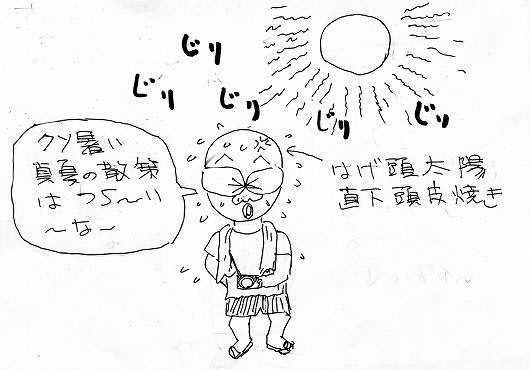 じり
じり
じり
じり
じり
クソ暑い
真夏の散策
はつら～い
～な～
はげ頭太陽
直下頭皮焼き